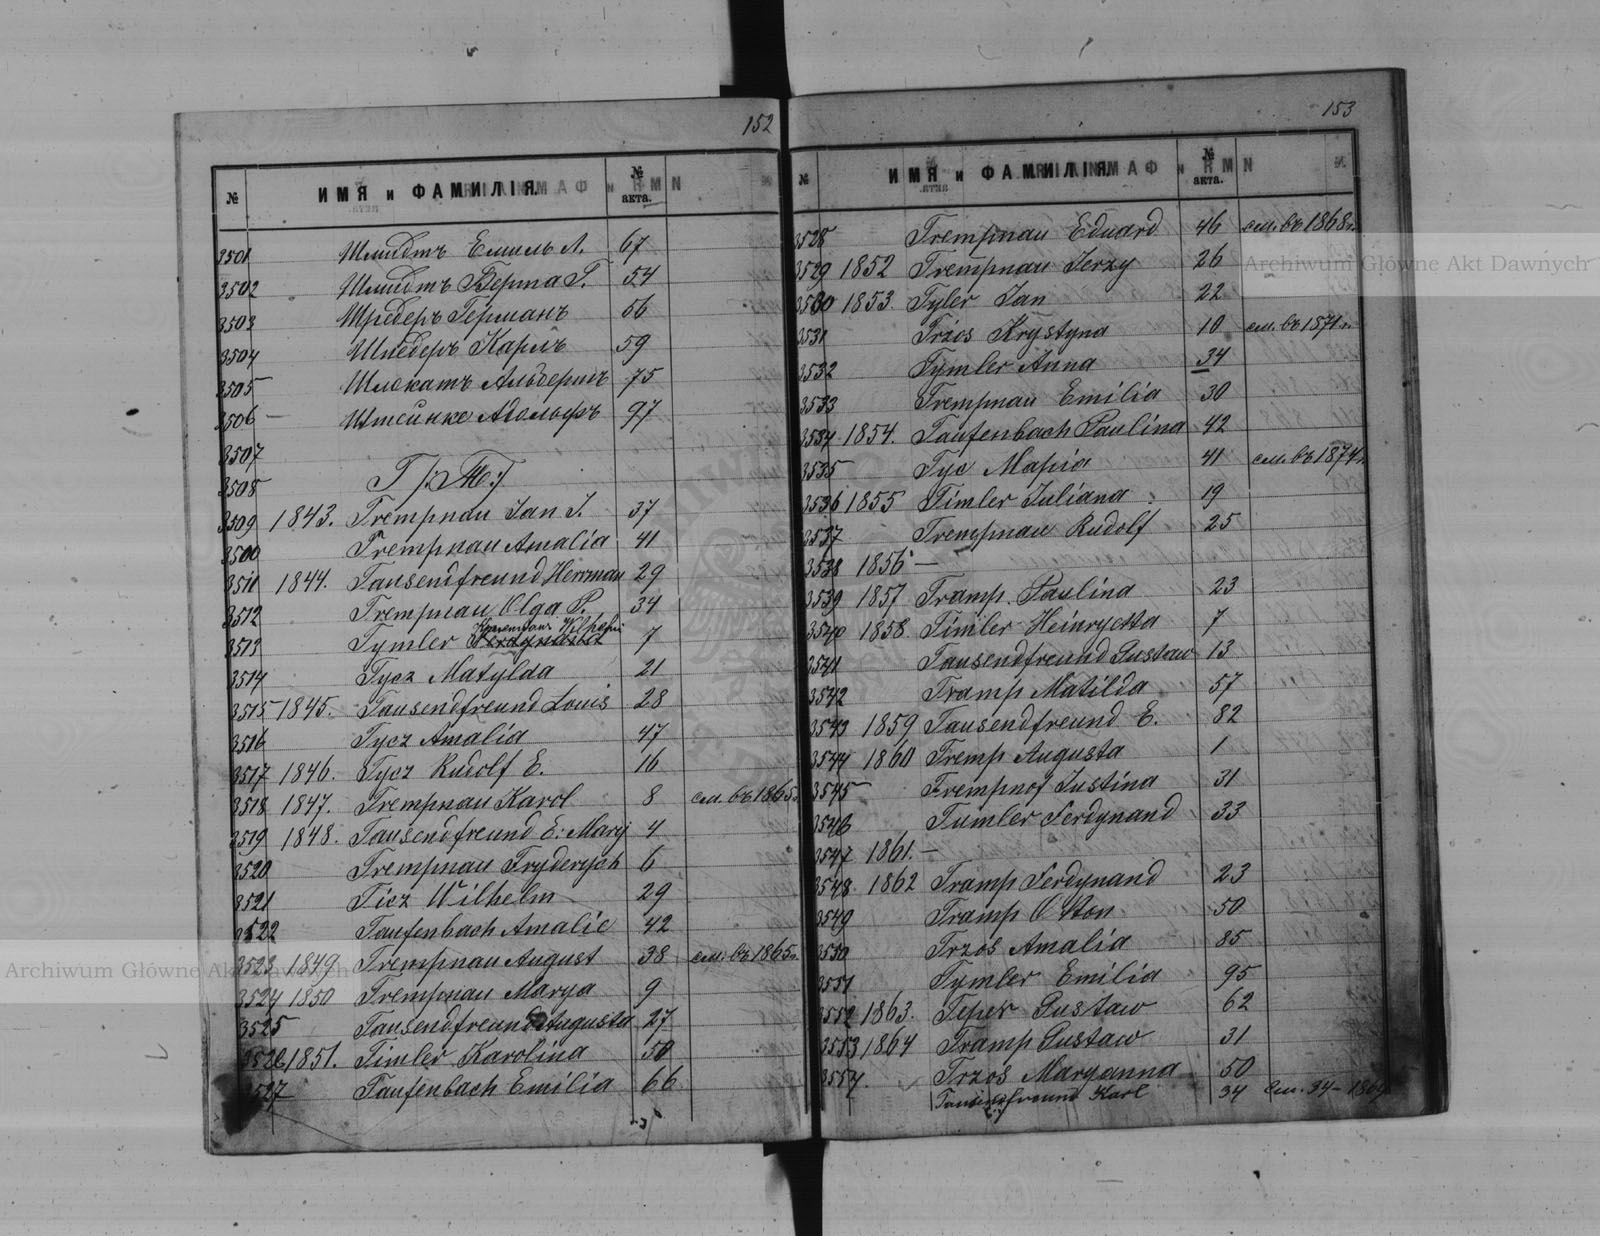 152
№ ИМЯ и ФАМИЛІЯ. № акта.
3501 Шмидтъ Емиль А. 67
3502 Шмидтъ Берта Г. 54
3503 Шредеръ Германъ 56
3504 Шнедеръ Карлъ 59
3505 Шлокатъ Альбертъ 75
3506 — Штейнке Адольфъ 97
3507
3508 Т /: Te :/
3509 1843. Trempnau Jan J. 37
3500 Trempnau Amalia 41
3511 1844. Tausendfreund Herrman 29
3512 Trempnau Olga P. 34
3513 Tymler Wilhelm 7
3514 Tycz Matylda 21
3515 1845. Tausendfreund Louis 28
3516 Tycz Amalia 47
3517 1846. Tycz Rudolf E. 16
3518 1847. Trempnau Karol 8 см. въ 1865г.
3519 1848. Tausendfreund E: Mary 4
3520 Trempnau Fryderych 6
3521 Ticz Wilhelm 29
3522 Taufenbach Amalie 42
3523 1849. Trempnau August 38 см. въ 1865г.
3524 1850 Trempnau Marya 9
3525 Tausendfreund Augusta 27
3526 1851. Timler Karolina 50
3527 Taufenbach Emilia 66
153
№ ИМЯ и ФАМИЛІЯ № акта.
3528 Trempnau Eduard 46 см. въ 1868г.
3529 1852 Trempnau Jerzy 26
3530 1853. Tyler Jan 22
3531 Trzos Krystyna 10 см. въ 1871г.
3532 Tymler Anna 34
3533 Trempnau Emilia 30
3534 1854. Taufenbach Paulina 42
3535 Tyc Maria 41 см. въ 1874г.
3536 1855 Timler Juliana 19
3537 Trempnau Rudolf 25
3538 1856 —
3539 1857 Tramp Paulina 23
3540 1858 Timler Heinryetta 7
3541 Tausendfreund Gustaw 13
3542 Tramp Matilda 57
3543 1859 Tausendfreund E. 82
3544 1860 Tremp Augusta 1
3545 Trempnof Justina 31
3546 Tumler Ferdynand 33
3547 1861. —
3548 1862 Tramp Ferdynand 23
3549 Tramp Otton 50
3550 Trzos Amalia 85
3551 Tymler Emilia 95
3552 1863. Teper Gustaw 62
3553 1864 Tramp Gustaw 31
3554. Trzos Maryanna 50
Tausendfreund Karl 34 см. 34 - 1869
Archiwum Główne Akt Dawnych
Archiwum Główne Akt Dawnych